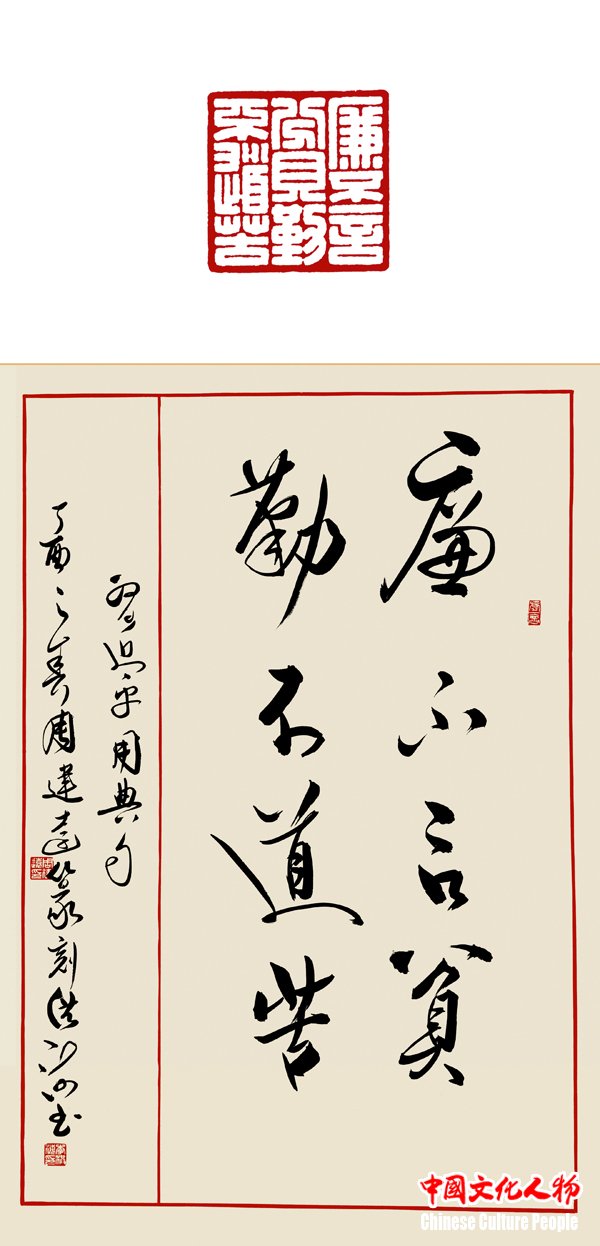 廉不言
貧勤
不道苦
廉不言貧
勤不道苦
習近平用典句
丁酉之春周建遠篆刻洪
中国文化人物
Chinese Culture People